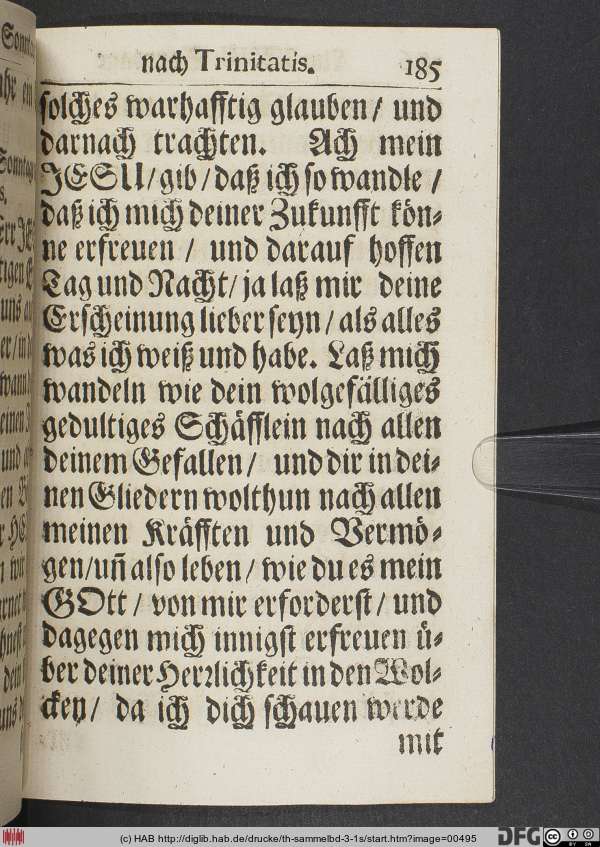 nach Trinitatis. 185
solches warhafftig glauben / und
darnach trachten. Ach mein
JESU / gib / daß ich so wandle /
daß ich mich deiner Zukunfft kön⸗
ne erfreuen / und darauf hoffen
Tag und Nacht / ja laß mir deine
Erscheinung lieber seyn / als alles
was ich weiß und habe. Laß mich
wandeln wie dein wolgefälliges
gedultiges Schäfflein nach allen
deinem Gefallen / und dir in dei⸗
nen Gliedern wolthun nach allen
meinen Kräfften und Vermö⸗
gen / uñ also leben / wie du es mein
GOtt / von mir erforderst / und
dagegen mich innigst erfreuen ü⸗
ber deiner Herꝛlichkeit in den Wol⸗
cken / da ich dich schauen werde
mit
(c) HAB http://diglib.hab.de/drucke/th-sammelbd-3-1s/start.htm?image=00495
DFG
cc BY SA